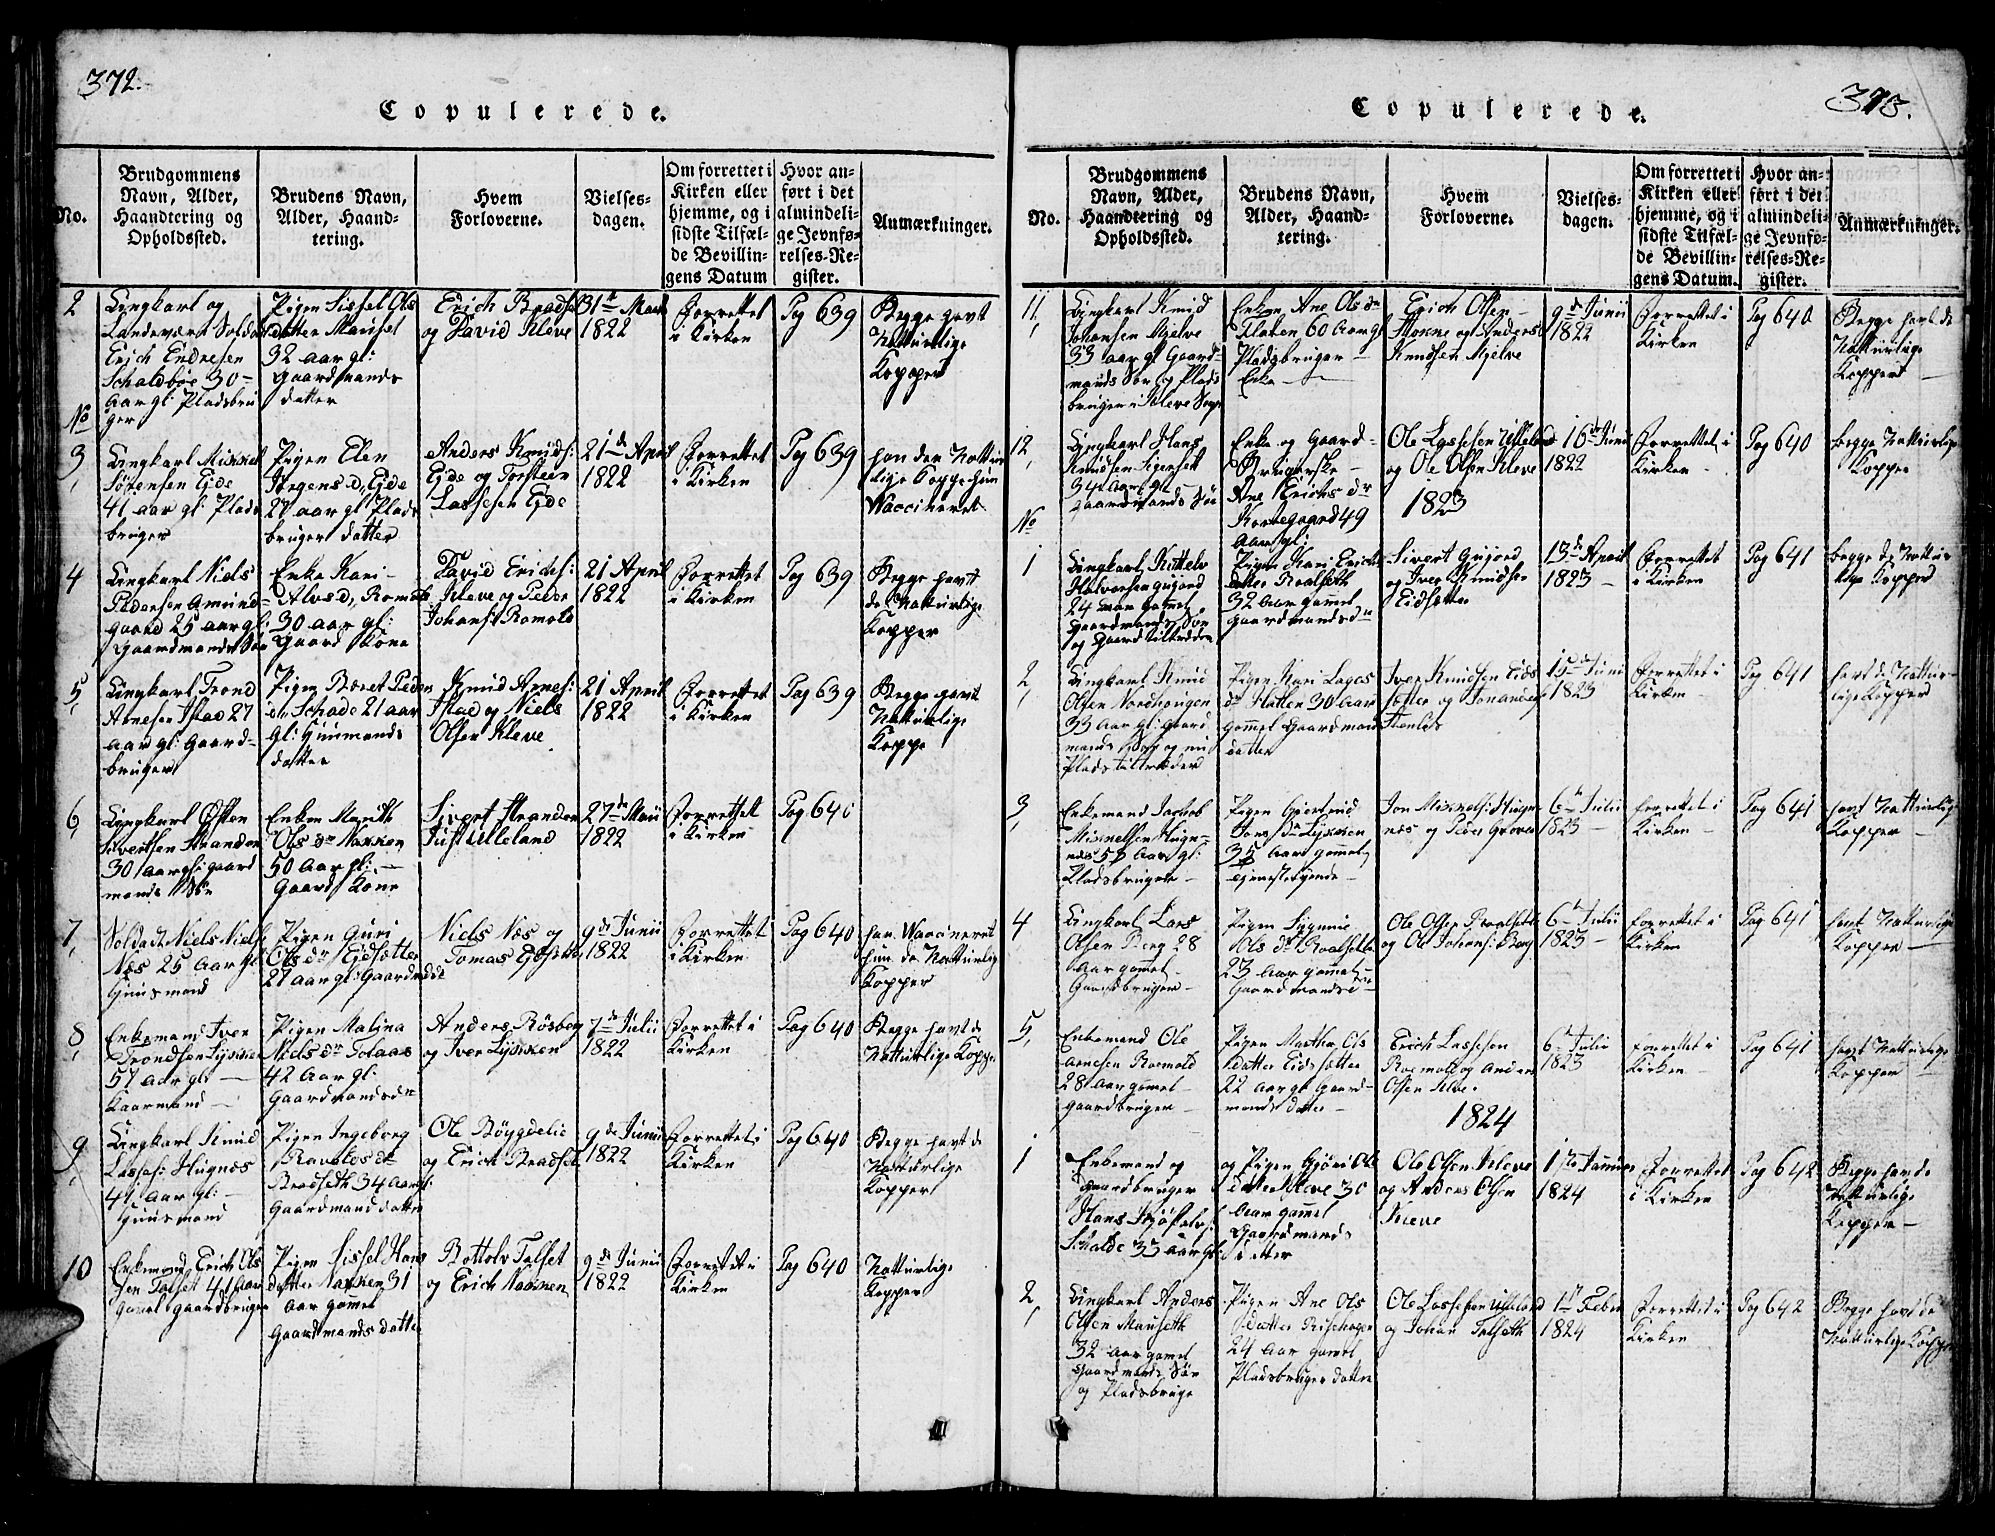 372.
Copulerede.
No.
Brudgommens
Navn, Alder,
Haandtering og
Opholdssted.
Brudens Navn,
Alder, Haand-
tering.
Hvem
Forloverne.
Vielses-
dagen.
Om forrettet i
Kirken eller
hjemme, og i
sidste Tilfæl-
de Bevillin-
gens Datum
Hvor an-
ført i det
almindeli-
ge Jevnfø-
relses-Re-
gister.
Anmærkninger.
2
Ungkarl og
Landeværn Soldat
Erich Endresen
Schaldbøe 30-
Aar gl: Pladsbru
ger
Pigen Sissel Ols
datter Mauset
32 aar gl:
Gaardmands
datter
Erich Bradset
og David Kleve
31te Mart
1822
Forrettet
i Kirken
Pag 639
Begge havt
Naturlige
Kopper
No
3,
Ungkarl Mikkel
Sørensen Eide
41 aar gl: Plads
bruger
Pigen Elen
Jørgens d, Eide
27 aar gl: Plads
bruger datter
Anders Knuds:
Eide og Torsteen
Lassesen Eide
21de April
1822
Forrettet
i Kirken
Pag 639
han den Nattur
lige Kopper hun
Waccineret
4
Ungkarl Niels
Pedersen Amund-
gaard 25 aar gl:
Gaardmands Søn
Enke Kari
Alvs d, Romol
30 aar gl:
Gaard Kone
David Erichs:
Kleve og Peder
Johans: Romols
21 April
1822
Forrettet
i Kirken
Pag 639
Begge havt
de Naturlige
Kopper
5,
Ungkarl Trond
Arnesen Stad 27
aar gl: Gaard-
bruger
Pigen Beret Peder
d, Schade 21 aar
gl: Huusmands
datter
Knud Arnes:
Stad og Niels
Olsen Kleve
21 April
1822
Forrettet
i Kirken
Pag 639
Begge havt
Naturlige
Koppe
6,
Ungkarl Østen
Sivertsen Stranden
30 Aar gl: gaard
mands Søn
Enken Marith
Ols dr Naxken
50 Aar gl:
Gaard Kone
Sivert Stranden
Just Ulleland
27de Maii
1822
Forrettet
i Kirken
Pag 640
7,
Soldadt Niels Niels:
Næs 25 Aar gl
Huusmand
Pigen Guri
Ols dr Eidsætter
27 aar gl: Gaardm d
Niels Næs og
Tomas Eidsætter
9de Junii
1822
Forrettet
i Kirken
Pag 640
han Waccineret
hun de Naturlig
Kopper
8,
Enkemand Iver
Trondsen Lyxen
57 Aar gl:
Kaarmand
Pigen Malina
Niels dr Tolaas
42 Aar gl:
Gaardmands dr
Anders Røsberg
og Iver Lyxen
7de Julii
1822
Forrettet i
Kirken
Pag 640
Begge havt de
Naturlige Kopper
9,
Ungkarl Knud
Lasses: Hugnæs
41 Aar gl:
Huusmand
Pigen Ingeborg
Bradseth 34 Aar gl:
Gaardmand datter
Ole Bøygdelie
og Erich Bradset
9de Junii
1822
Forrettet i
Kirken
Pag 640
Begge havt de
Natturlige
Kopper
10
Enkemand Erich Ols
sen Talset 41 Aar
Gamel gaardbruger
Pigen Sissel Hans
datter Naxken 31
Aar gamel
Gaardmands datter
Bottolv Talset
og Erich Naxken
9de Junii
1822
Forrettet i
Kirken
Pag 640
Natturlige
Kopper
373.
Copulerede.
No.
Brudgommens
Navn, Alder,
Haandtering og
Opholdssted.
Brudens Navn,
Alder, Haand-
tering.
Hvem
Forloverne.
Vielses-
dagen.
Om forrettet i
Kirken eller
hjemme, og i
sidste Tilfæl-
de Bevillin-
gens Datum.
Hvor an-
ført i det
almindeli-
ge Jevnfø-
relses-Re-
gister.
Anmærkninger.
11,
Ungkarl Knud
Johansen Mjelve
33 aar gl Gaard-
mands Søn og Plads
bruger i Kleve Sogn
Enken Ane Ols dr
Flaten 60 Aar gl
Pladsbruger
Enke
Erich Olsen
Stonne og Anders
Knudsen Mjelve
9de Junii
1822
Forrettet i
Kirken
Pag 640
Begge havt de
Natturlige
Kopper
12,
Ungkarl Hans
Knudsen Sigerset
34 Aar gl
Gaardmands Søn
Enke og Gaard-
Brugerske
Ane Erichs dr
Korsegaard 49
Aar gl:
Ole Lassesen Ulleland
og Ole Olsen Kleve
16de Junii
1822
Forrettet i
Kirken
Pag 640
begge Natturlige
Kopper
1823
No
1
Ungkarl Kittel
Halvorsen Gujord
24 Aar Gamel
Gaardmands Søn
og Gaard tiltræden
Pigen Kari Erichs
datter Roalseth
32 Aar gammel
Gaardmands dr
Sivert Gujord
og Iver Knudsen
Eidsætter
13de April
1823
Forrettet
i Kirken
Pag 641
begge de Nattur
lige Kopper
2,
Ungkarl Knud
Olsen Nordhougen
33 Aar gl: Gaard
mands Søn og nu
Plads tiltræder
Pigen Kari Lages
dr Hatten 30 Aar
gammel Gaardmand
datter
Iver Knudsen Eids
sætter og Jonandes
Stenlös
15de Juni
1823
Forrettet i
Kirken
Pag 641
havt de Nattur-
lige Kopper
3,
Enkemand Jacob
Mikkelsen Hugn-
næs 53 Aar gl:
Pladsbruger
Pigen Giertrud
Jons dr Lyxen
35 Aar gammel
tjenestetyende
Jon Mikkels: Hugn
næs og Peder Groven
6te Julii
1823
forrettet i
Kirken
Pag 641
havt Natturlige
Kopper
4
Ungkarl Lars
Olsen Berg 28
Aar gamel
Gaardbruger
Pigen Sigrnie
Ols dr Roalseth
23 Aar gammel
Gaardmands dr
Ole Olsen Roalseth
og Ole Johans: Berg
6te Julii
1823
forrettet i
Kirken
Pag 641
havt Natturlige
Kopper
5,
Enkemand Ole
Arnesen Roemold
28 Aar gamel
gaardbruger
Pigen Martha Ols
datter Eidsætter
22 Aar gl Gaard-
mands datter
Erich Lassesen
Roemold og Anders
Olsen Kleve.
6te Julii
1823
forrettet i
Kirken
Pag 641
havt Natturlige
Kopper
1824
1
Enkemand og
Gaardbruger
Hans
Schalde 33 Aar gl:
og Pigen Gjøri Ols
datter Kleve 30
Aar gammel
Gaardmands
datter
Ole Olsen Kleve
og Anders Olsen
Kleve
1ste Januar
1824
Forrettet
i Kirken
Pag 642
Begge havt de
Naturlige
Kopper
2,
Ungkarl Anders
Olsen Mauseth
32 Aar gamel
Gaardmands Søn
og Pladsbruge
Pigen Ane Ols
datter Rishagen
24 Aar gamel
Pladsbruger datter
Ole Lassesen Ulleland
og Johan Talseth
1ste Feber
1824
Forrettet i
Kirken
Pag 642
Begge havt de
Natturlige Kopper